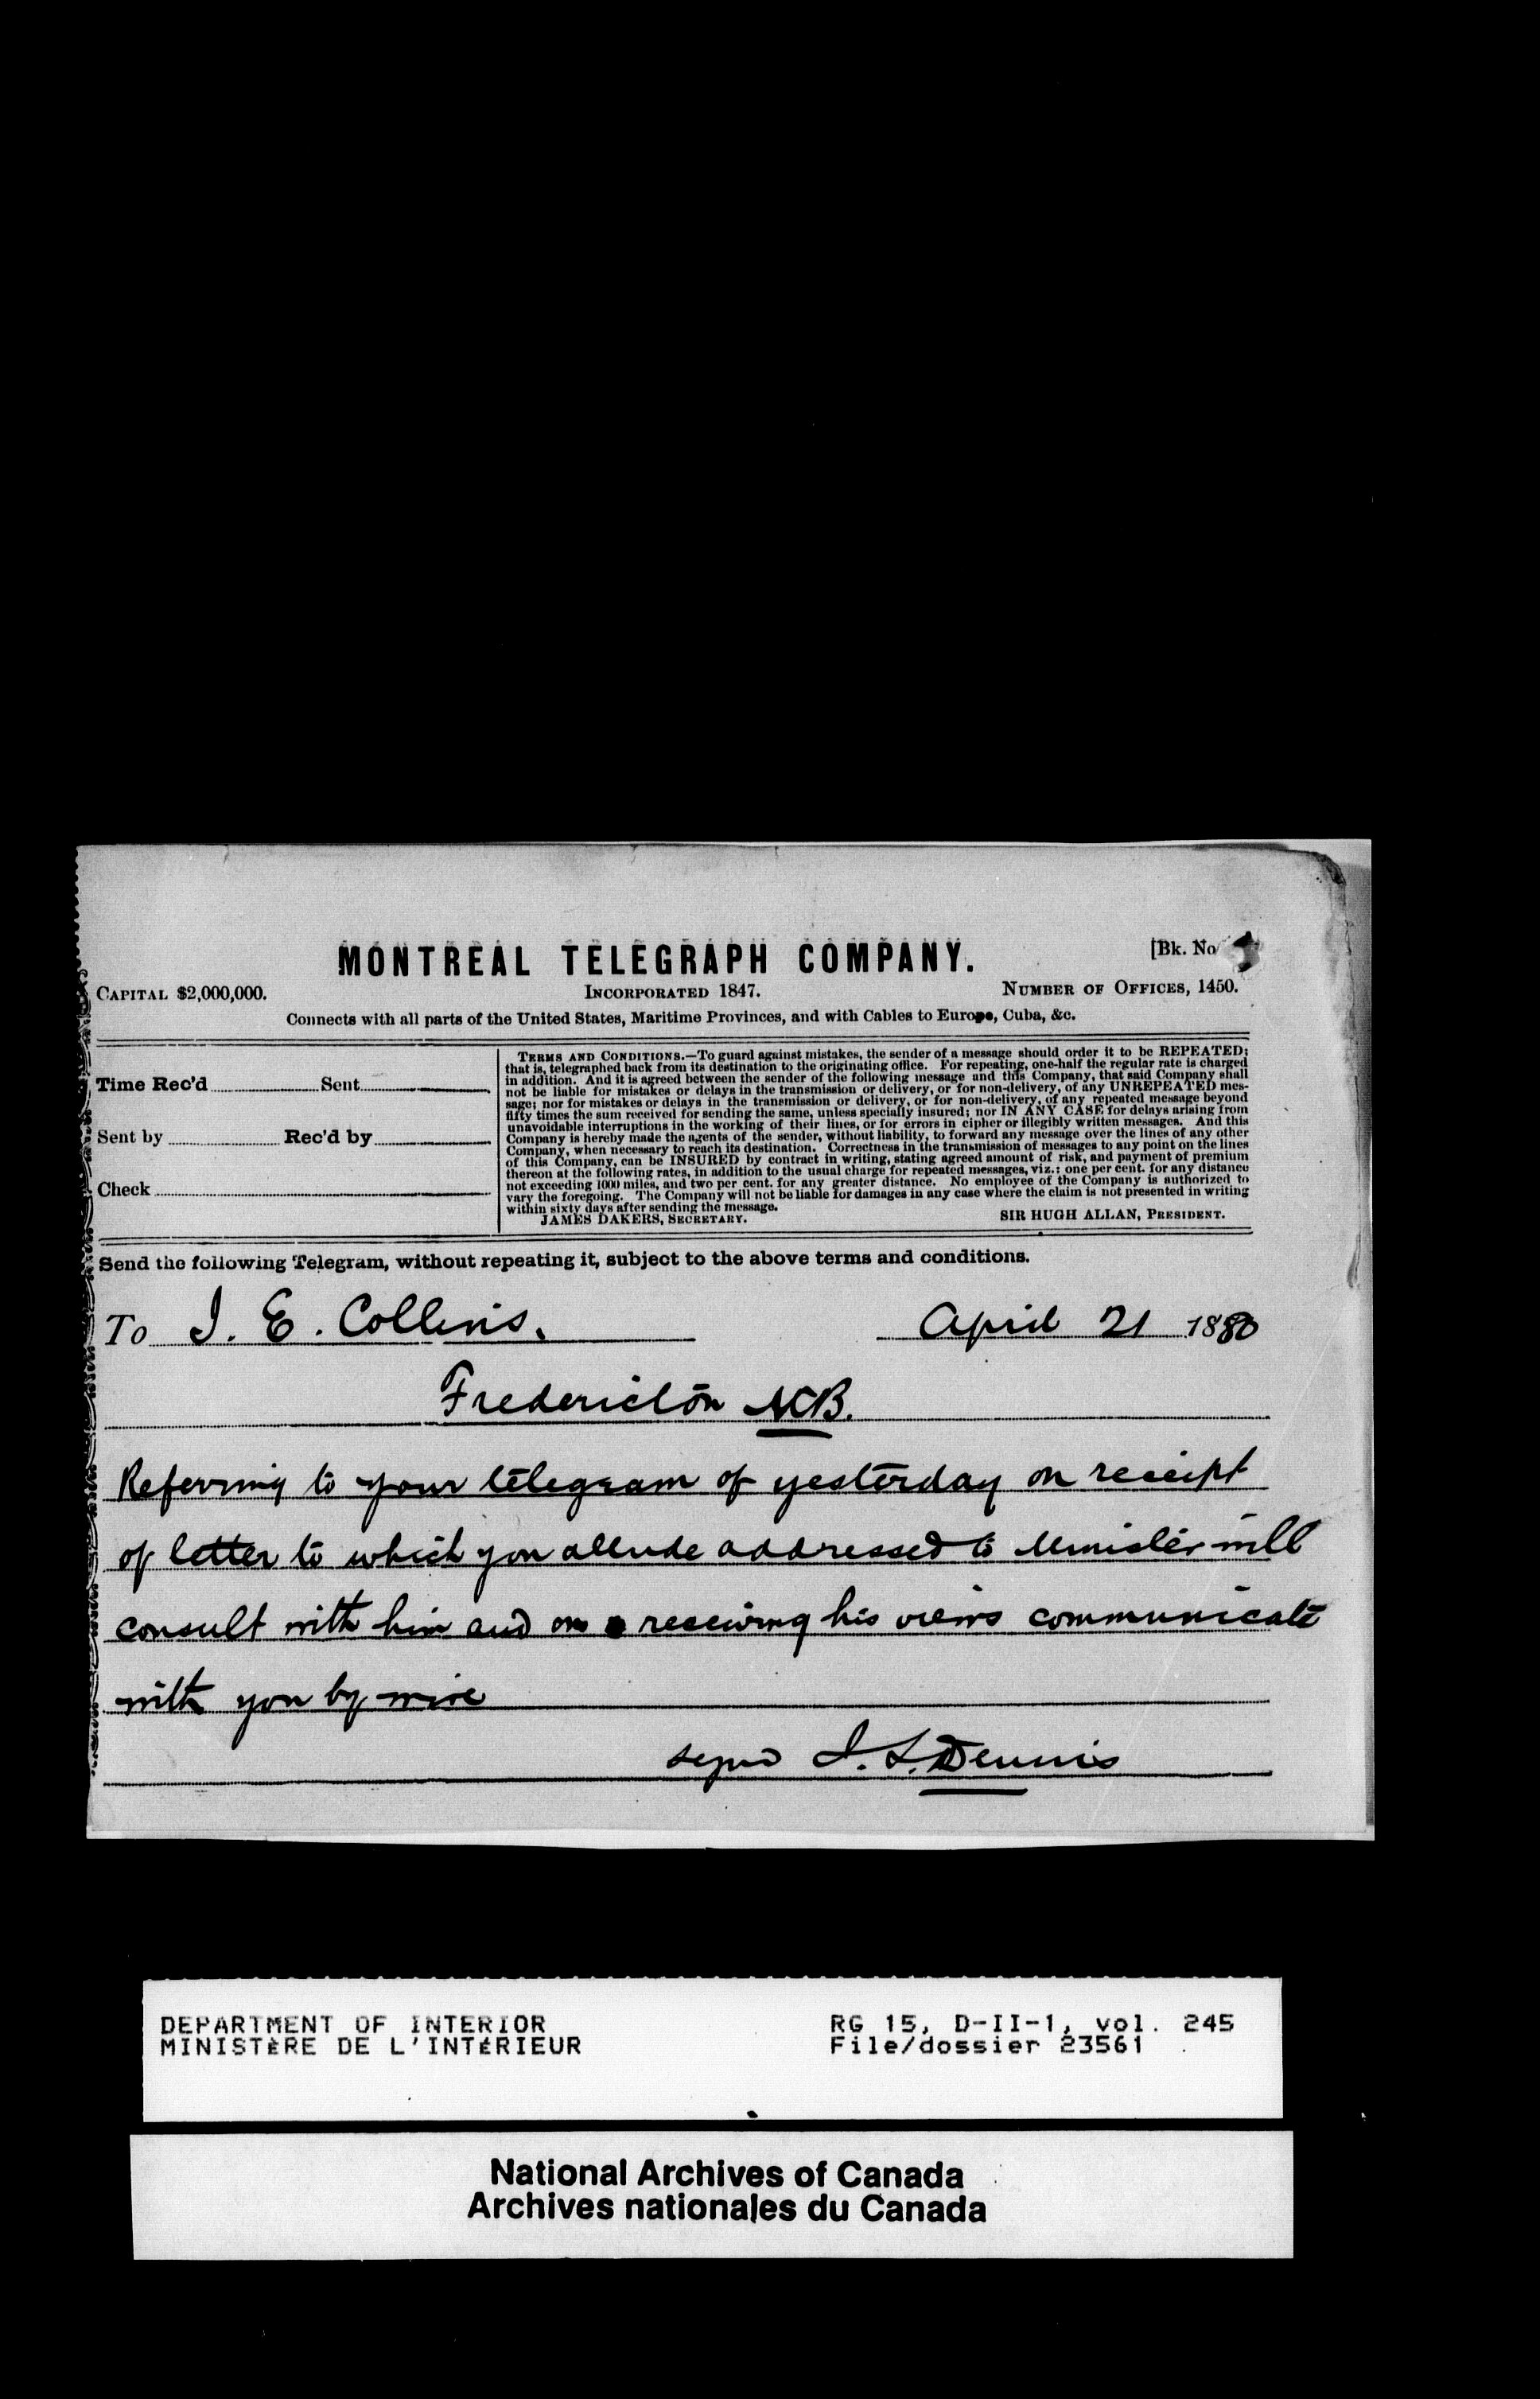 MONTREAL TELEGRAPH COMPANY.
[Bk. No
CAPITAL $2,000,000.
INCORPORATED 1847.
NUMBER OF OFFICES, 1450.
Connects with all parts of the United States, Maritime Provinces, and with Cables to Europe, Cuba, &c.
Time Rec'd Sent
Sent by Rec'd by
Check
TERMS AND CONDITIONS.—To guard against mistakes, the sender of a message should order it to be REPEATED;
that is, telegraphed back from its destination to the originating office. For repeating, one-half the regular rate is charged
in addition. And it is agreed between the sender of the following message and this Company, that said Company shall
not be liable for mistakes or delays in the transmission or delivery, or for non-delivery, of any UNREPEATED mes-
sage; nor for mistakes or delays in the transmission or delivery, or for non-delivery, of any repeated message beyond
fifty times the sum received for sending the same, unless specially insured; nor IN ANY CASE for delays arising from
unavoidable interruptions in the working of their lines, or for errors in cipher or illegibly written messages. And this
Company is hereby made the agents of the sender, without liability, to forward any message over the lines of any other
Company, when necessary to reach its destination. Correctness in the transmission of messages to any point on the lines
of this Company, can be INSURED by contract in writing, stating agreed amount of risk, and payment of premium
thereon at the following rates, in addition to the usual charge for repeated messages, viz.: one per cent. for any distance
not exceeding 1000 miles, and two per cent. for any greater distance. No employee of the Company is authorized to
vary the foregoing. The Company will not be liable for damages in any case where the claim is not presented in writing
within sixty days after sending the message.
JAMES DAKERS, SECRETARY.
SIR HUGH ALLAN, PRESIDENT.
Send the following Telegram, without repeating it, subject to the above terms and conditions.
To J. E. Collins. April 21 1880
Fredericton NB.
Referring to your telegram of yesterday on receipt
of letter to which you allude addressed to Minister will
consult with him and on receiving his views communicate
with you by wire
signed J. S. Dennis
DEPARTMENT OF INTERIOR
MINISTÈRE DE L'INTÉRIEUR
RG 15, D-II-1, vol. 245
File/dossier 23561
National Archives of Canada
Archives nationales du Canada